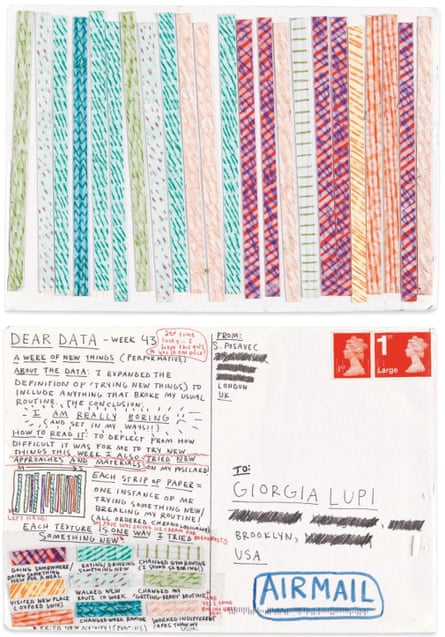 DEAR DATA - WEEK 43
A WEEK OF NEW THINGS (PERFORMATIVE)
ABOUT THE DATA: I EXPANDED THE
DEFINITION OF 'TRYING NEW THINGS) TO
INCLUDE ANYTHING THAT BROKE MY USUAL
ROUTINE. THE CONCLUSION:
I AM REALLY BORING
(AND SET IN MY WAYS!!)
HOW TO READ IT: TO DEFLECT FROM HOW
DIFFICULT IT WAS FOR ME TO TRY NEW
THINGS THIS WEEK I ALSO TRIED NEW
APPROACHES AND MATERIALS ON MY POSTCARD
EACH STRIP OF PAPER =
ONE INSTANCE OF ME
TRYING SOMETHING NEW/
BREAKING MY ROUTINE/
(ALL ORDERED CHRONOLOGICALLY)
EACH TEXTURE IS ONE WAY I TRIED
SOMETHING NEW
GOING SOMEWHERE/
DOING SOMETHING
NEW FOR A MEAL
EATING/DRINKING
SOMETHING NEW
CHANGED GYM ROUTINE
VISITED NEW PLACE
WALKED NEW
ROUTE TO WORK
CHANGED MY
"GETTING-READY" ROUTINE
CHANGED WORK
WORKED IN DIFFERENT
FROM:
S. POSAVEC
LONDON
UK
1st
1st
Large
TO:
GIORGIA LUPI
BROOKLYN,
USA
AIRMAIL